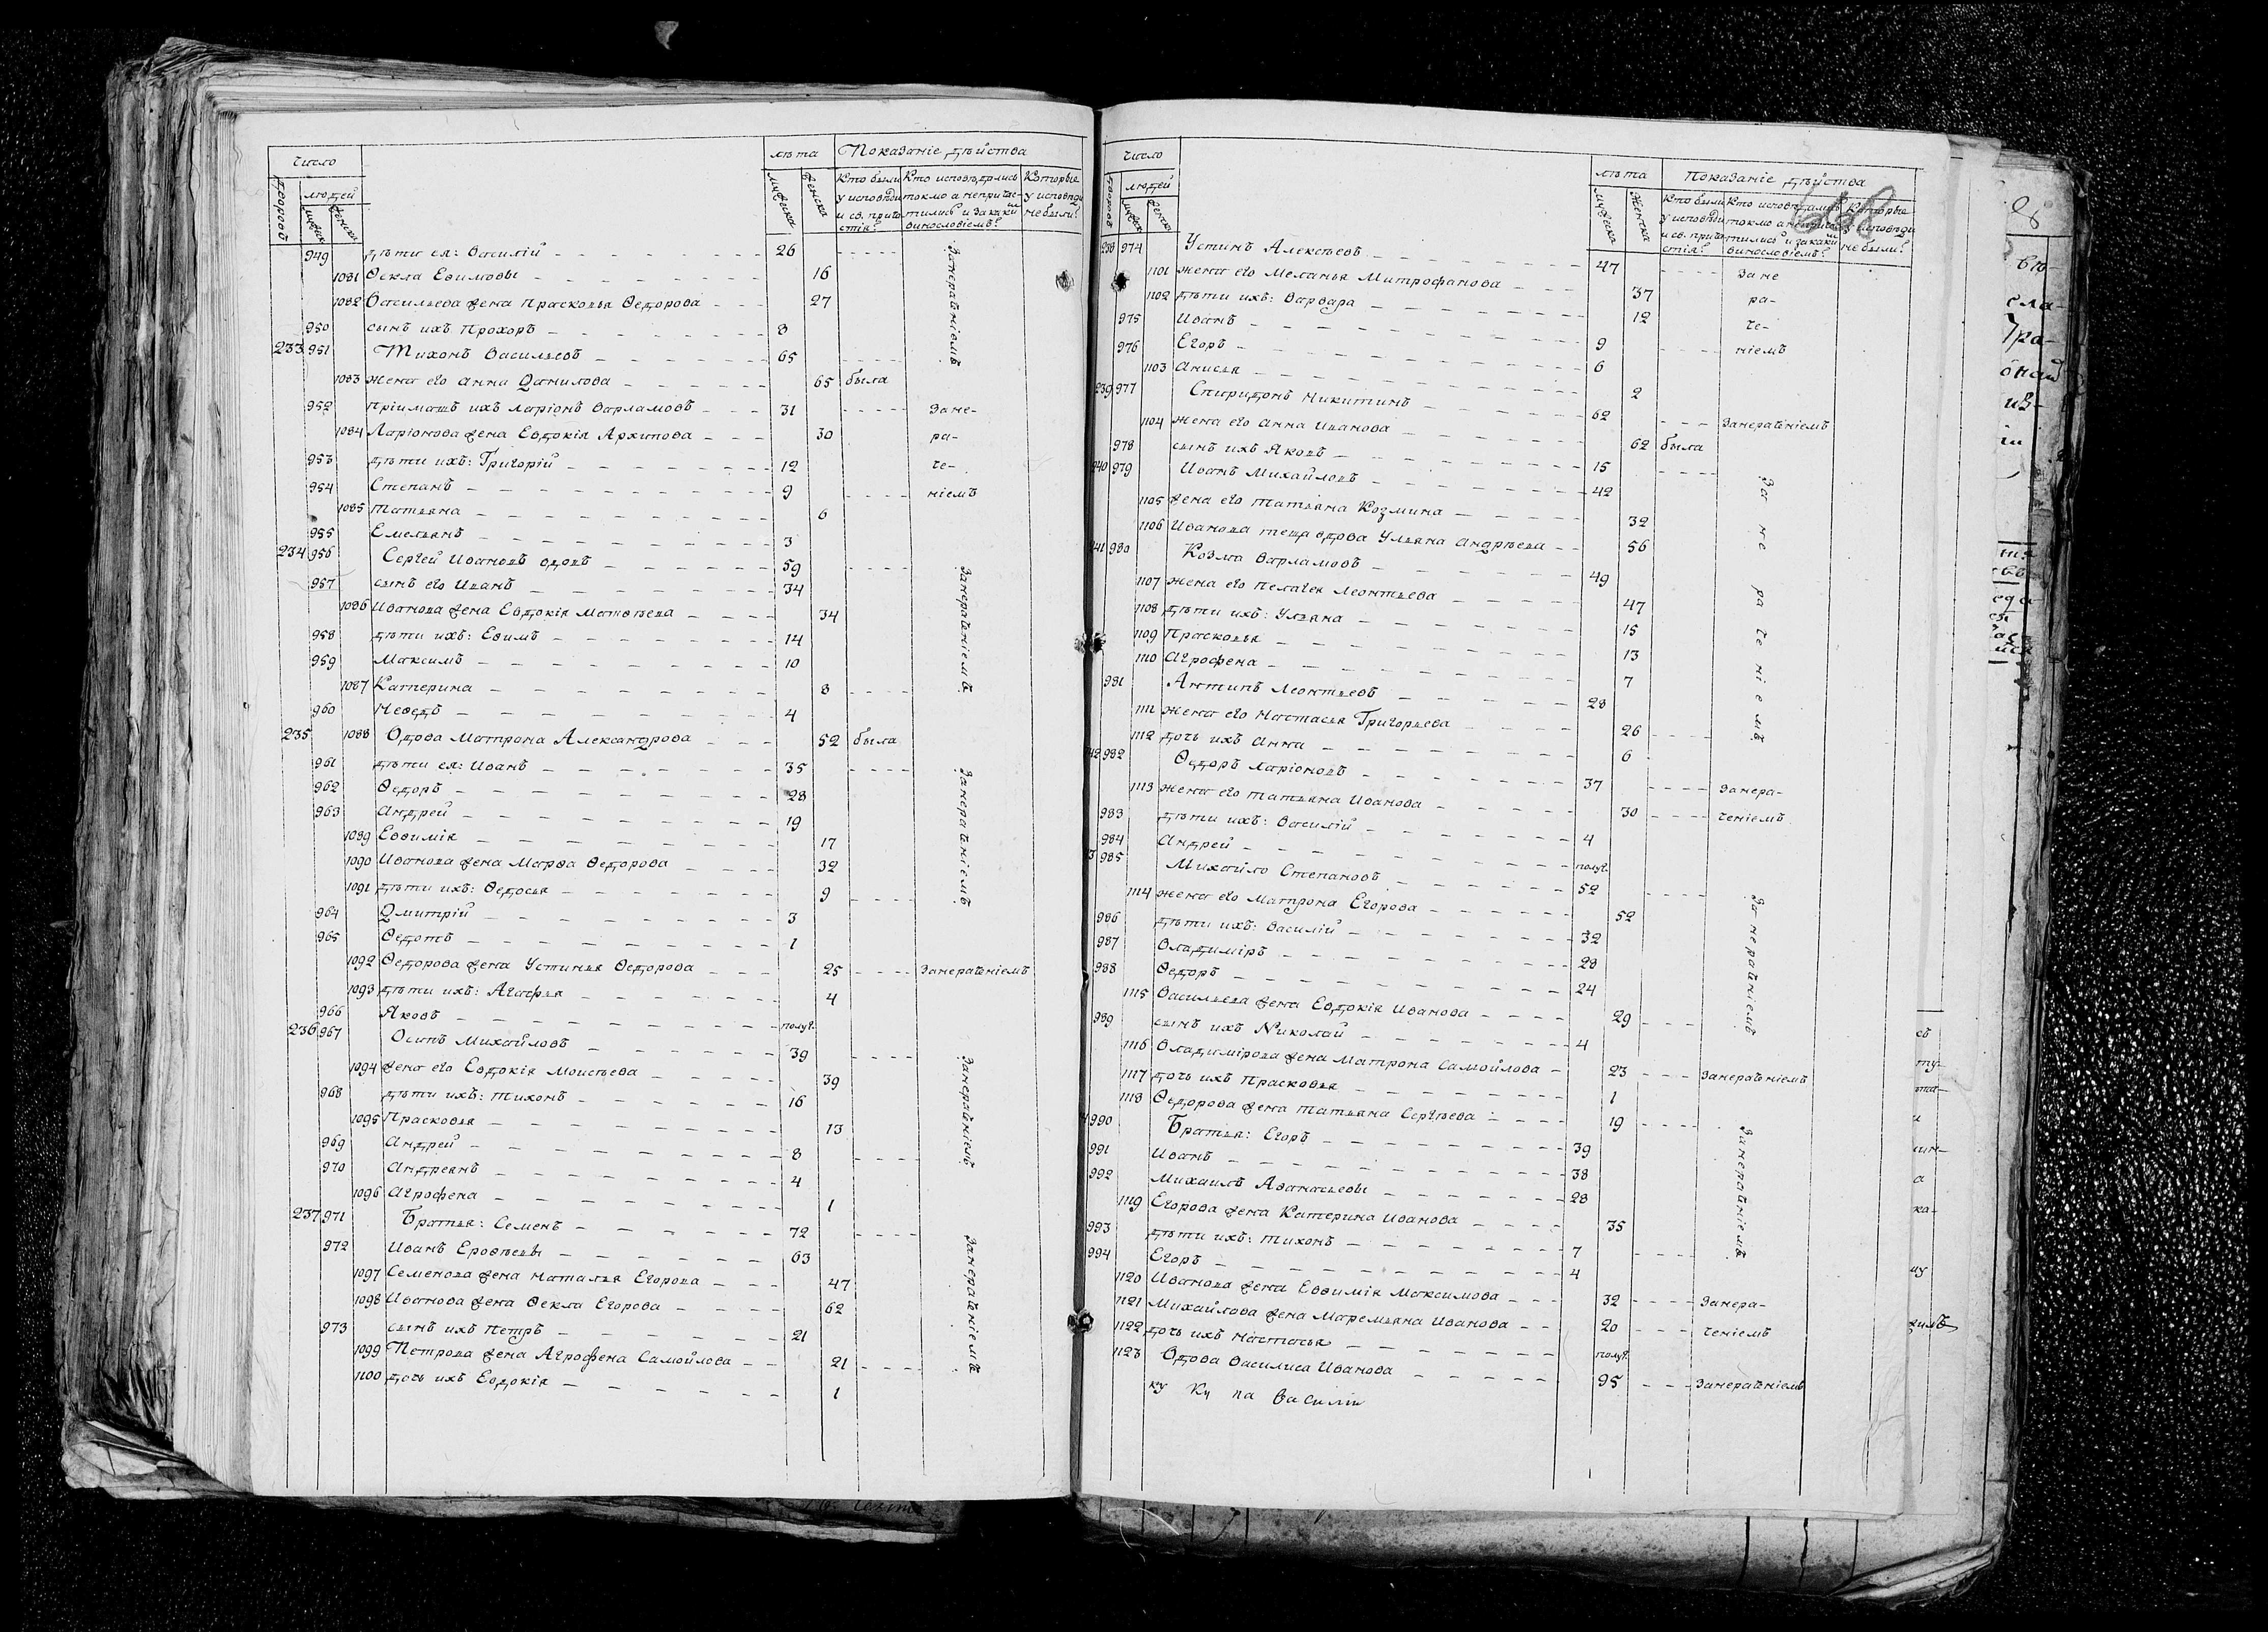 Число лѣта Показаніе дѣйства
Дворовъ людей мужеска женска Кто были у исповѣди и св. причастія? Кто исповѣдались токмо а непричастились и закакимъ винословіемъ? Которые у исповѣди небыли?
949 дѣти ея: Василій 26
1081 Ѳекла Еѳимовы 16
1082 Васильева жена Прасковья Ѳедорова 27
950 сынъ ихъ Прохоръ 8
Занераченіемъ
233 951 Тихонъ Васильевъ 65
1083 жена его Анна Данилова 65 была
952 пріимашъ ихъ Ларіонъ Варламовъ 31 Зане-
1084 Ларіонова жена Евдокія Архипова 30 ра-
953 дѣти ихъ: Григорій 12 че-
954 Степанъ 9 ніемъ
1085 Татьяна 6
955 Емельянъ 3
234 956 Сергей Ивановъ вдовъ 59
957 сынъ его Иванъ 34
1086 Иванова жена Евдокія Матвѣева 34
958 дѣти ихъ: Еѳимъ 14
959 Максимъ 10
1087 Катерина 8
960 Меѳедъ 4
Занераченіемъ
235 1088 Вдова Матрона Александрова 52 была
961 дѣти ея: Иванъ 35
962 Ѳедоръ 28
963 Андрей 19
1089 Евѳимія 17
1090 Иванова жена Марѳа Ѳедорова 32
1091 дѣти ихъ: Ѳедосья 9
Занераченіемъ
964 Дмитрій 3
965 Ѳедотъ 1
1092 Ѳедорова жена Устинья Ѳедорова 25 Занераченіемъ
1093 дѣти ихъ: Агафья 4
966 Яковъ полуг.
236 967 Осипъ Михайловъ 39
1094 жена его Евдокія Моисѣева 39
968 дѣти ихъ: Тихонъ 16
1095 Прасковья 13
969 Андрей 8
970 Андреянъ 4
1096 Агрофена 1
Занераченіемъ
237 971 Братья: Семенъ 72
972 Иванъ Ероѳѣевы 63
1097 Семенова жена Наталья Егорова 47
1098 Иванова жена Ѳекла Егорова 62
973 сынъ ихъ Петръ 21
1099 Петрова жена Агрофена Самойлова 21
1100 дочь ихъ Евдокія 1
Занераченіемъ
Число лѣта Показаніе дѣйства
Дворовъ людей мужеска женска Кто были у исповѣди и св. причастія? Кто исповѣдались токмо а непричастились и закакимъ винословіемъ? Которые у исповѣди не были?
238 974 Устинъ Алексѣевъ 47 Зане
1101 жена его Меланья Митрофанова 37 ра-
1102 дѣти ихъ: Варвара 12 че-
975 Иванъ 9 ніемъ
976 Егоръ 6
1103 Анисья 2
239 977 Спиридонъ Никитинъ 62 Занераченіемъ
1104 жена его Анна Иванова 62 была
978 сынъ ихъ Яковъ 15
240 979 Иванъ Михайловъ 42
1105 жена его Татьяна Козмина 32
1106 Иванова теща вдова Ульяна Андрѣева 56
241 980 Козма Варламовъ 49
1107 жена его Пелагея Леонтьева 47
1108 дѣти ихъ: Ульяна 15
1109 Прасковья 13
1110 Агрофена 7
981 Антипъ Леонтьевъ 28
1111 жена его Настасья Григорьева 26
1112 дочь ихъ Анна 6
За не ра че ні е мъ
242 982 Ѳедоръ Ларіоновъ 37 Занера-
1113 жена его Татьяна Иванова 30 ченіемъ
983 дѣти ихъ: Василій 4
984 Андрей полуг.
3 985 Михайло Степановъ 52
1114 жена его Матрона Егорова 52
986 дѣти ихъ: Василій 32
987 Владиміръ 28
988 Ѳедоръ 24
1115 Васильева жена Евдокія Иванова 29
Занераченіемъ
989 сынъ ихъ Николай 4
1116 Владимірова жена Матрона Самойлова 23 Занераченіемъ
1117 дочь ихъ Прасковья 1
1118 Ѳедорова жена Татьяна Сергѣева 19
990 Братья: Егоръ 39
991 Иванъ 38
992 Михаилъ Аѳанасьевы 28
1119 Егорова жена Катерина Иванова 35
993 дѣти ихъ: Тихонъ 7
994 Егоръ 4
Занераченіемъ
1120 Иванова жена Евѳимія Максимова 32 Занера-
1121 Михайлова жена Маремьяна Иванова 20 ченіемъ
1122 дочь ихъ Настасья полуг.
1123 Вдова Василиса Иванова 95 Занераченіемъ